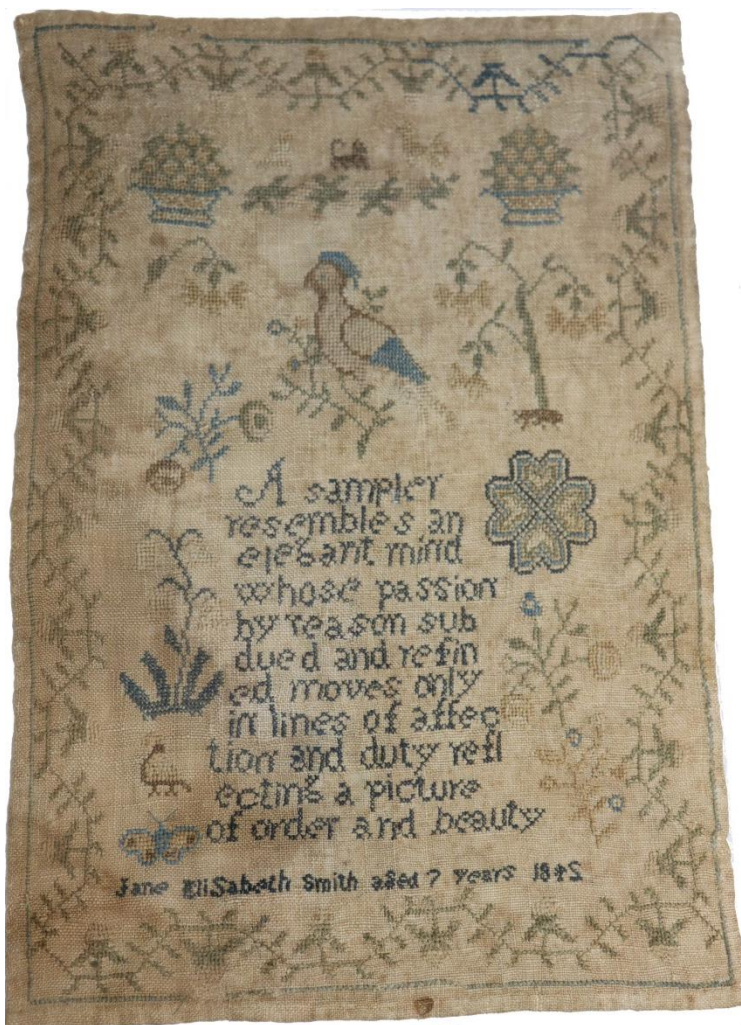 A sampler
resembles an
elegant mind
whose passion
by reason sub
dued and refin
ed moves only
in lines of affec
tion and duty refl
ecting a picture
of order and beauty
Jane EliSabeth Smith aged 7 years 1845